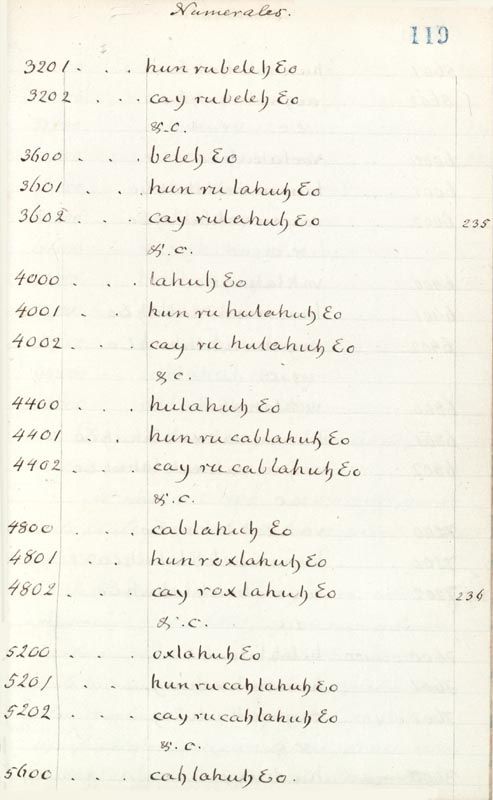 Numerales.
119
3201 . . . hun rubeleꜧ Ɛo
3202 . . . cay rubeleꜧ Ɛo
&.c.
3600 . . . beleꜧ Ɛo
3601 . . . hun ru lahuꜧ Ɛo
3602 . . . cay rulahuꜧ Ɛo 235
&.c.
4000 . . . lahuꜧ Ɛo
4001 . . . hun ru hulahuꜧ Ɛo
4002 . . . cay ru hulahuꜧ Ɛo
&c.
4400 . . . hulahuꜧ Ɛo
4401 . . . hun ru cablahuꜧ Ɛo
4402 . . . cay ru cablahuꜧ Ɛo
&.c.
4800 . . . cablahuꜧ Ɛo
4801 . . . hun roxlahuꜧ Ɛo
4802 . . . cay roxlahuꜧ Ɛo 236
&.c.
5200 . . . oxlahuꜧ Ɛo
5201 . . . hun ru caꜧlahuꜧ Ɛo
5202 . . . cay ru caꜧlahuꜧ Ɛo
&.c.
5600 . . . caꜧlahuꜧ Ɛo.